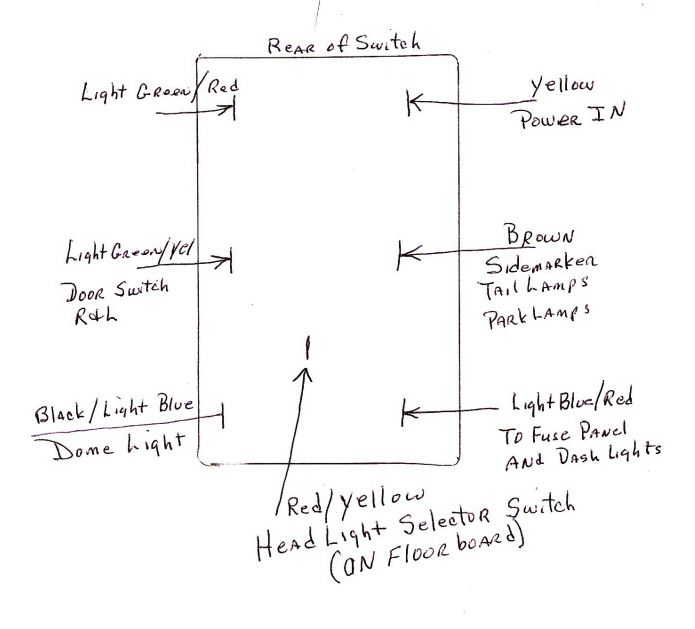 Rear of Switch
Light Green/Red
Yellow
Power IN
Light Green/Yel
Door Switch
R&H
Brown
Sidemarker
Tail Lamps
Park Lamps
Black/Light Blue
Dome Light
Light Blue/Red
To Fuse Panel
And Dash Lights
Red/Yellow
Head Light Selector Switch
(ON Floor board)